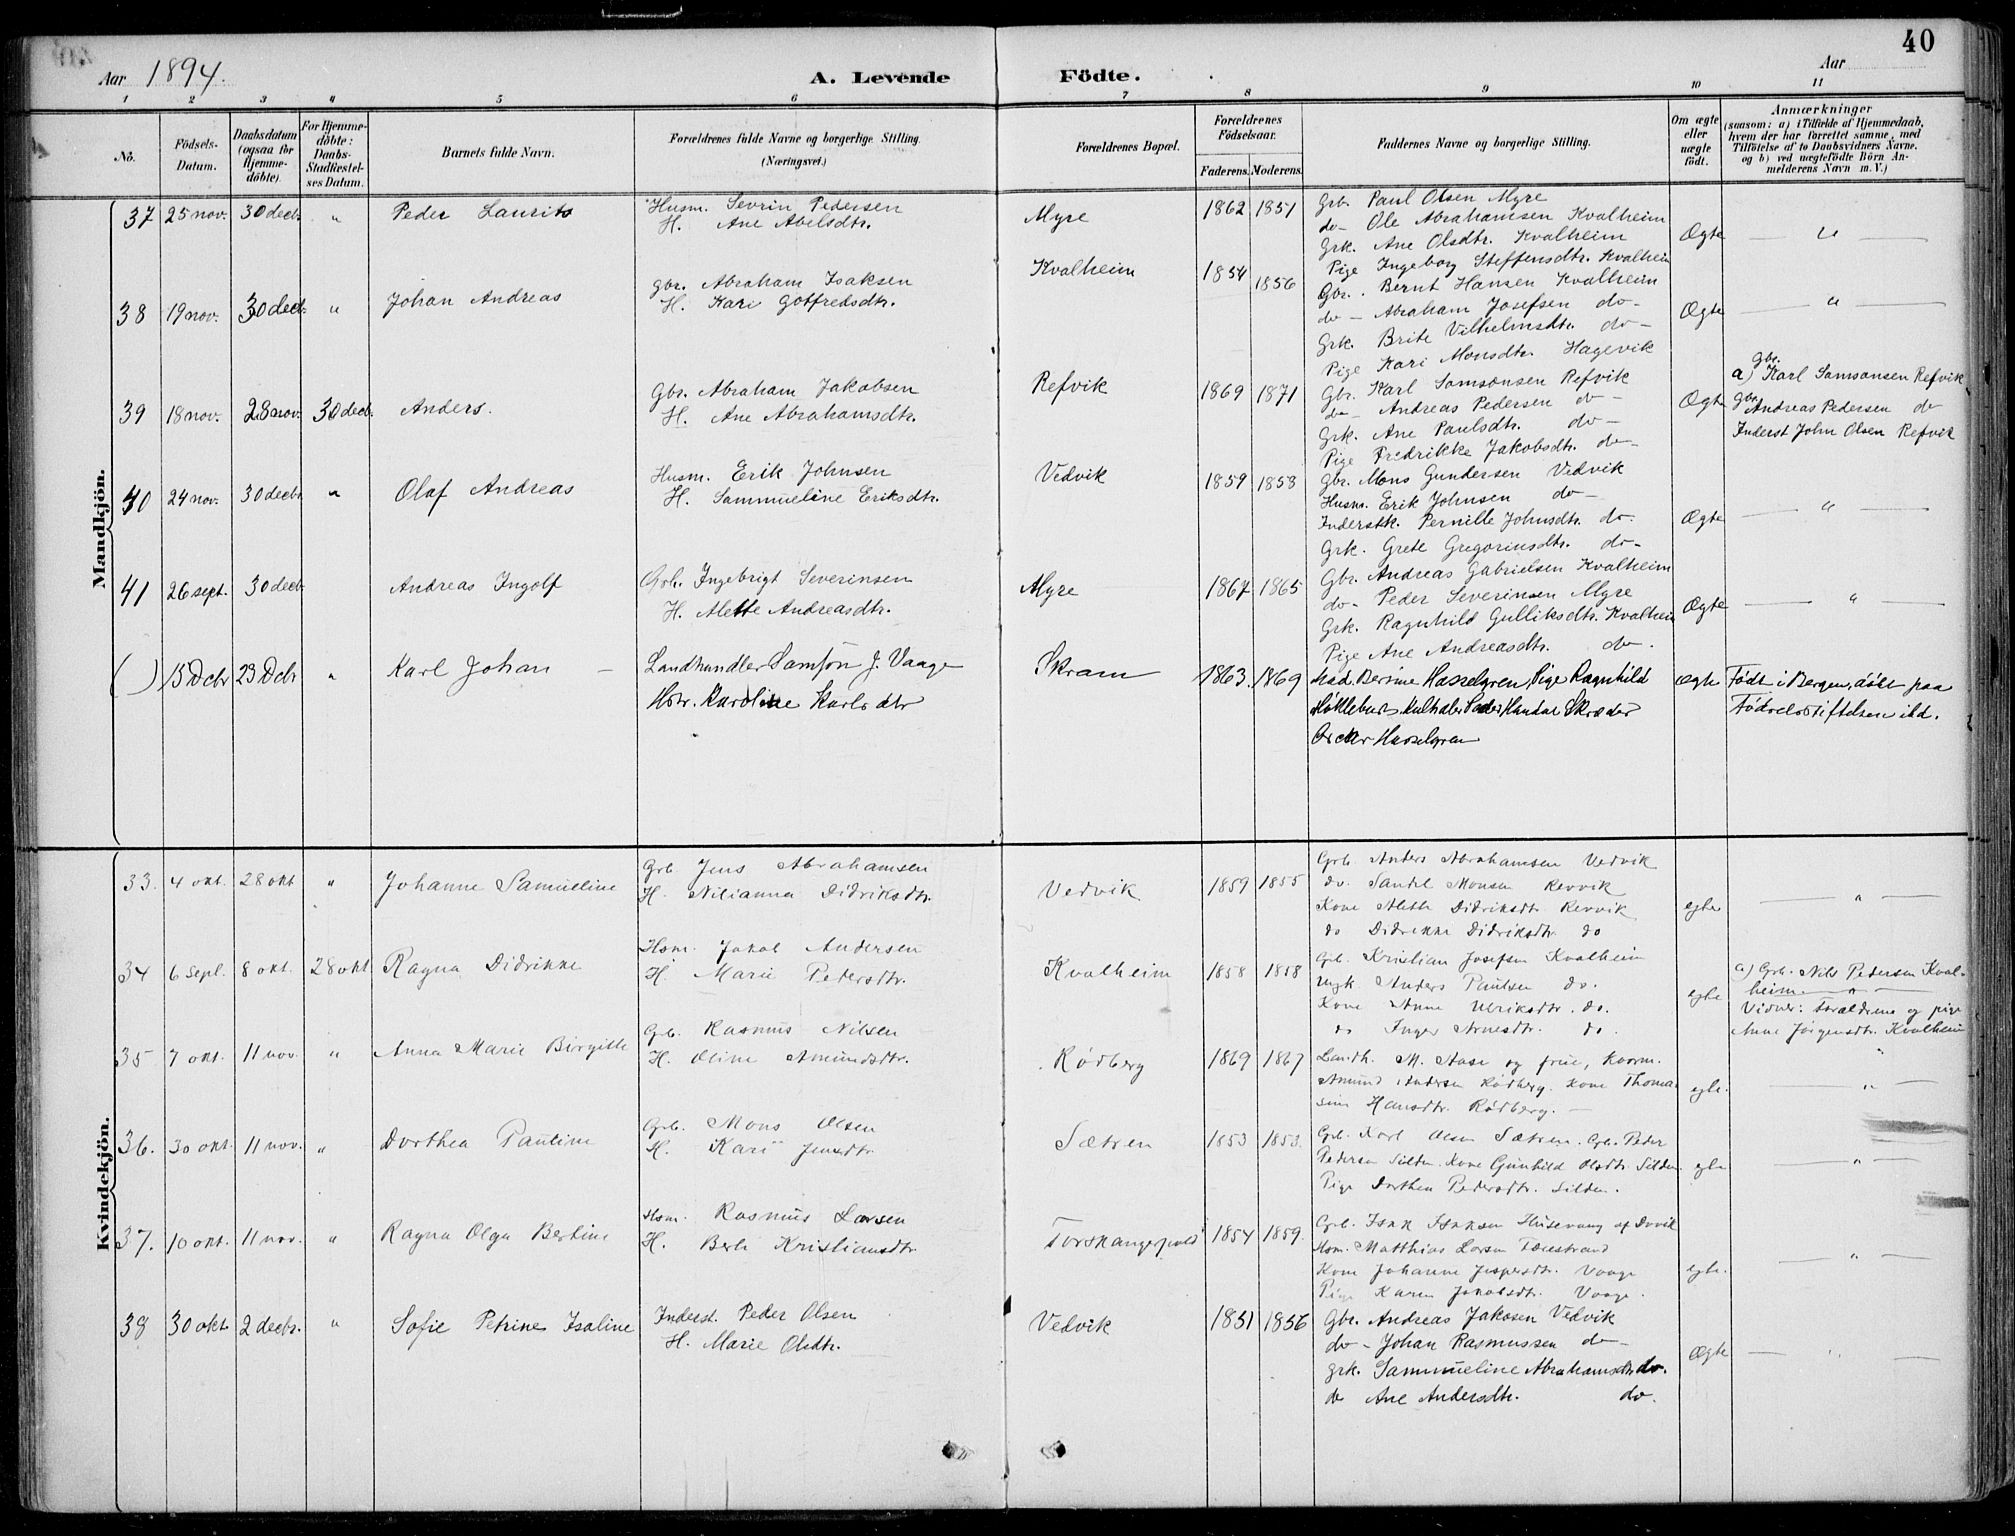 40
Aar 1894. A. Levende Födte. Aar
1 2 3 4 5 6 7 8 9 10 11
No. Födsels-Datum. Daabsdatum (ogsaa for Hjemme-döbte). For Hjemme-döbte: Daabs-Stadfæstel-ses Datum. Barnets fulde Navn. Forældrenes fulde Navne og borgerlige Stilling. (Næringsvei.) Forældrenes Bopæl. Forældrenes Födselsaar. Faderens. Moderens. Faddernes Navne og borgerlige Stilling. Om ægte eller uægte födt. Anmærkninger (saasom: a) i Tilfælde af Hjemmedaab, hvem der har forrettet samme, med Tilföielse af to Daabsvidners Navne. og b) ved uægtefödte Börn An-melderens Navn m.V.)
Mandkjön.
37 25 nov. 30 decb. " Peder Laurits Husm. Sevrin Pedersen Myre 1862 1851 Grb. Paul Olsen Myre
H. Ane Abelsdtr. do- Ole Abrahamsen Kvalheim Ægte — " —
Grk. Ane Olsdtr. Kvalheim
Pige Ingeborg Steffensdtr. Kvalheim
38 19 nov. 30 decb. " Johan Andreas gbr. Abraham Isaksen Kvalheim 1854 1856 Gbr. Bernt Hansen Kvalheim
H. Kari Gotfredsdtr. do — Abraham Josefsen do- Ægte — " —
Grk. Brite Vilhelmsdtr. do-
Pige Kari Monsdtr. Hagevik
39 18 nov. 28 nov. 30 decb. Anders. Gbr. Abraham Jakobsen Refvik 1869 1871 Gbr. Karl Samsonsen Refvik Ægte a) Gbr. Karl Samsonsen Refvik
H. Ane Abrahamsdtr. do- Andreas Pedersen do- Gbr. Andreas Pedersen do
Grk. Ane Paulsdtr. do- Inderst John Olsen Refvik
Pige Fredrikke Jakobsdtr. do-
40 24 nov. 30 decbr. " Olaf Andreas Husm. Erik Johnsen Vedvik 1859 1853 Gbr. Mons Gundersen Vedvik
H. Sammueline Eriksdtr. Husm. Erik Johnsen do-
Inderstk. Pernille Johnsdtr. do. Ægte — " —
Grk. Grete Gregoriusdtr. do-
41 26 sept. 30 decb. Andreas Ingolf Grb. Ingebrigt Severinsen Myre 1867 1865 Gbr. Andreas Gabrielsen Kvalheim
H. Alette Andreasdtr. do- Peder Severinsen Myre Ægte — " —
Grk. Ragnhild Gulliksdtr. Kvalheim
Pige Ane Andreasdtr. do-
( ) 15 Dcbr 23 Dcbr " Karl Johan — Landhandler Samson J. Vaage Skram 1863. 1869 Mad. Berine Hasselgren, Pige Ragnhild ægte Født i Bergen, døbt paa
Hstr. Karoline Karlsdtr Skræder Fødselsstiftelsen ibd.
Hasselgren
Kvindekjön.
33. 4 okt. 28 okt " Johanne Samueline Grb. Jens Abrahamsen Vedvik 1859 1855 Grb. Anders Abrahamsen Vedvik
H. Nilianna Didriksdtr. do. Sandel Monsen Revvik
Kone Alette Didriksdtr. Revvik egte — " —
do Didrikke Didriksdtr. do
34 6 sept. 8 okt. 28 okt Ragna Didrikke Hsm. Jakob Andersen Kvalheim 1858 1858 Grb. Kristian Josefsen Kvalheim a) Grb. Nils Pedersen Kval-
H. Marie Petersdtr. Ungk Anders Paulsen do. egte heim. — " —
Kone Anne Ulriksdtr. do. Vidner: Forældrene og pige
do Inger Arnesdtr. do. Anne Jørgensdtr. Kvalheim
35 7 okt. 11 nov. " Anna Marie Birgitte Grb. Rasmus Nilsen Rødberg 1869 1867 Landh. M. Aase og frue, Kvorm.
H. Oline Amundsdtr. Amund Andersen Rødberg. Kone Thoma egte. — " —
sine Hansdtr. Rødberg. —
36. 30 okt. 11 nov. " Dorthea Pauline Grb. Mons Olsen Sætren 1853 1853. Grb. Karl Olsen Sætren. Grb. Peder
H. Kari Jensdtr Pedersen Silden. Kone Gunhild Olsdtr. Silden. egte — " —
Pige Dorthea Pedersdtr. Silden.
37. 10 okt. 11 nov. " Ragna Olga Bertine Hsm. Rasmus Larsen Torskangerpold 1854 1859. Grb. Isak Isaksen Husevaag af Davik
H. Berte Kristiansdtr. Hsm. Matthias Larsen
Kone Johanne Jespersdtr. Vaage egte. — " —
Pige Karen Jakobsdtr. Vaage.
38 30 okt. 2 decbr. " Sofie Petrine Isaline Inderst. Peder Olsen Vedvik 1851 1856 Gbr. Andreas Jakosen Vedvik
H. Marie Olsdtr. do- Johan Rasmussen do- Ægte — " —
grk. Sammueline Abrahamsdtr. do.
do Ane Andersdtr. do.